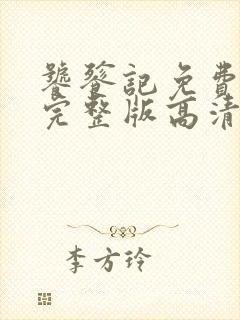 饕餮記免費
完整版高清
李方玲